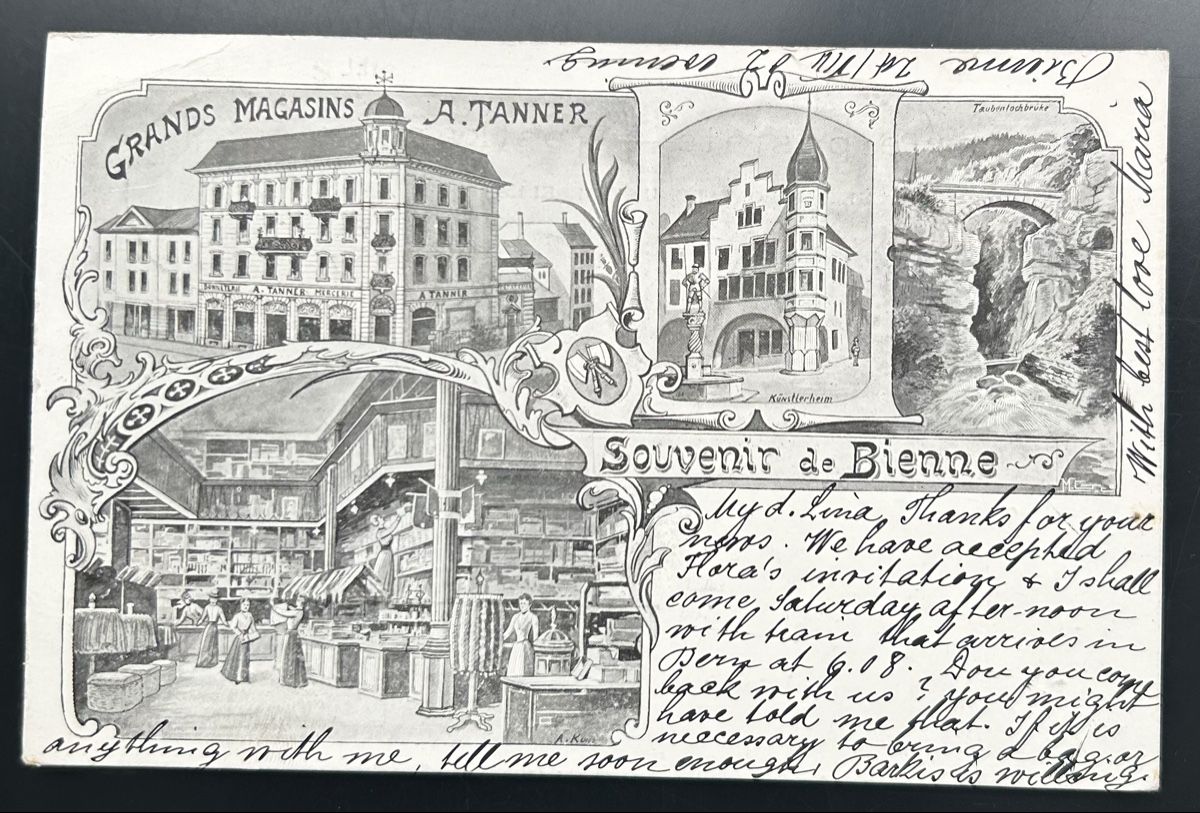 GRANDS MAGASINS A. TANNER
BONNETERIE A. TANNER MERCERIE
A TANNER
Künstlerheim
Taubenlochbrüke
Souvenir de Bienne
A. Kunz
Bienne 24/VII 02 evening
My d. Lina, Thanks for your
news. We have accepted
Flora's invitation & I shall
come Saturday after-noon
with train that arrives in
Bern at 6.08. Don you come
back with us? you might
have told me that. If it is
necessary to bring a bag or
anything with me, tell me soon enough, Barkis is willing.
With best love Maria